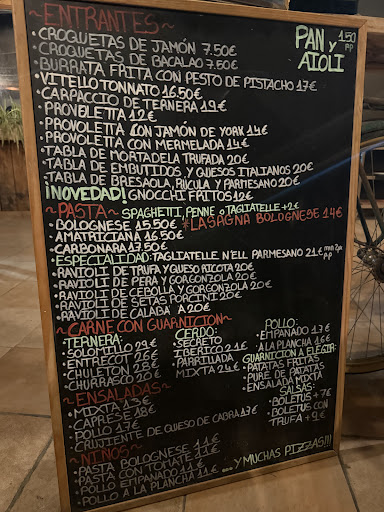 ~ENTRANTES~
PAN y AIOLI 1.50 p.p
• CROQUETAS DE JAMÓN 7.50€
• CROQUETAS DE BACALAO 7.50€
• BURRATA FRITA CON PESTO DE PISTACHO 17€
• VITELLO TONNATO 16.50€
• CARPACCIO DE TERNERA 19€
• PROVOLETTA 12€
• PROVOLETTA CON JAMÓN DE YORK 14€
• PROVOLETTA CON MERMELADA 14€
• TABLA DE MORTADELA TRUFADA 20€
• TABLA DE EMBUTIDOS Y QUESOS ITALIANOS 20€
• TABLA DE BRESAOLA, RÚCULA Y PARMESANO 20€
¡NOVEDAD! GNOCCHI FRITOS 12€
~PASTA~ SPAGHETTI, PENNE o TAGLIATELLE +2€
• BOLOGNESE 15.50€ *LASAGNA BOLOGNESE 14€
• AMATRICIANA 16.50€
• CARBONARA 17.50€
ESPECIALIDAD: TAGLIATELLE N'ELL PARMESANO 21€ min 2p. p.p
• RAVIOLI DE TRUFA Y QUESO RICOTA 20€
• RAVIOLI DE PERA Y GORGONZOLA 20€
• RAVIOLI DE CEBOLLA Y GORGONZOLA 20€
• RAVIOLI DE SETAS PORCINI 20€
• RAVIOLI DE CALABAZA 20€
~CARNE CON GUARNICION~
TERNERA:
• SOLOMILLO 29€
• ENTRECOT 26€
• CHULETON 28€
• CHURRASCO 20€
CERDO:
• SECRETO IBERICO 21€
• PARRILLADA MIXTA 24€
POLLO:
• EMPANADO 17€
• A LA PLANCHA 16€
GUARNICION A ELEGIR:
• PATATAS FRITAS
• PURE DE PATATAS
• ENSALADA MIXTA
SALSAS:
• BOLETUS +7€
• BOLETUS CON TRUFA +9€
~ENSALADAS~
• MIXTA 15€
• CAPRESE 18€
• POLLO 17€
• CRUJIENTE DE QUESO DE CABRA 13€
~NIÑOS~
• PASTA BOLOGNESE 11€
• PASTA CON TOMATE 11€
• POLLO EMPANADO 11€
• POLLO A LA PLANCHA 11€
...Y MUCHAS PIZZAS!!!